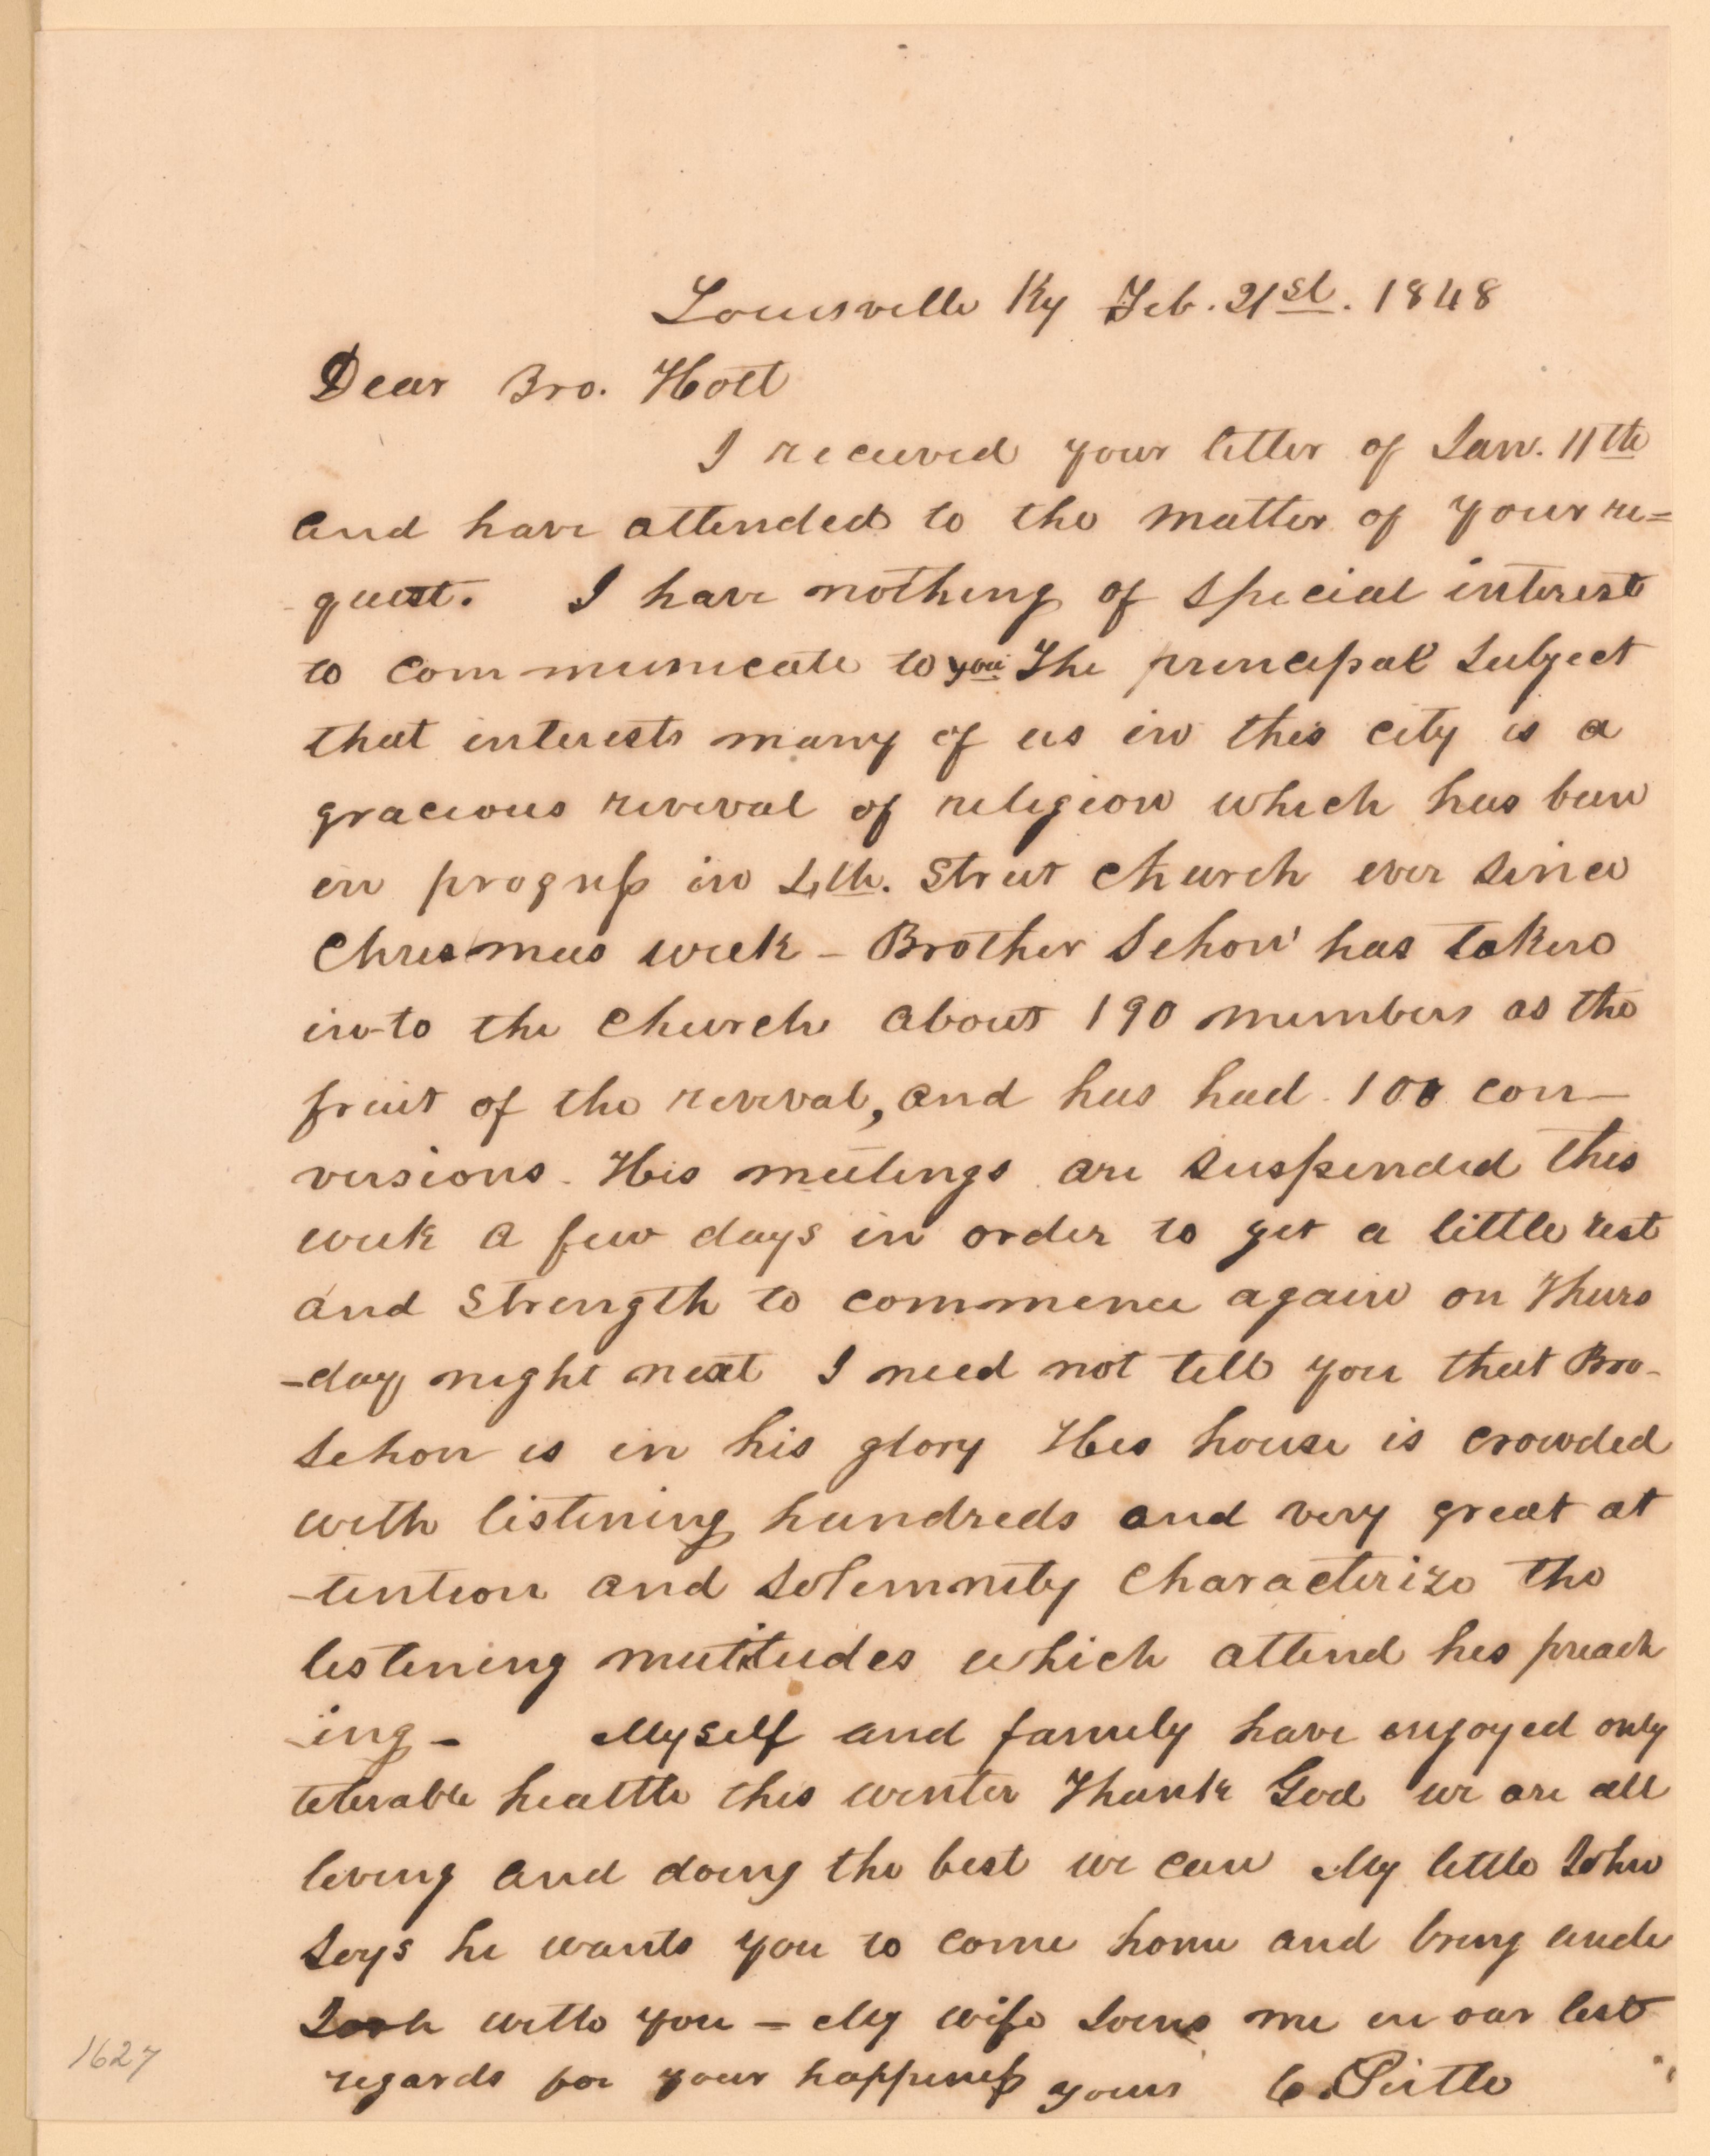 Louisville Ky Feb. 21st. 1848
Dear Bro. Holt
I received your letter of Jan. 11th
and have attended to the matter of your re=
quest. I have nothing of special interest
to communicate to you The principal subject
that interests many of us in this city is a
gracious revival of religion which has been
in progress in 4th. Street Church ever since
Chrismas week - Brother Sehon has taken
into the church about 190 members as the
fruit of the revival, and has had 100 con-
versions. His meetings are suspended this
week a few days in order to get a little rest
and strength to commence again on Thurs
-day night next I need not tell you that Bro-
Sehon is in his glory His house is crowded
with listening hundreds and very great at
-tention and solemnity characterize the
listening mutitudes which attend his preach
-ing - Myself and family have enjoyed only
tolerable health this winter Thank God we are all
living and doing the best we can My little John
says he wants you to come home and bring uncle
with you - My wife Joins me in our best
regards for your happiness yours C. Pirtle
1627